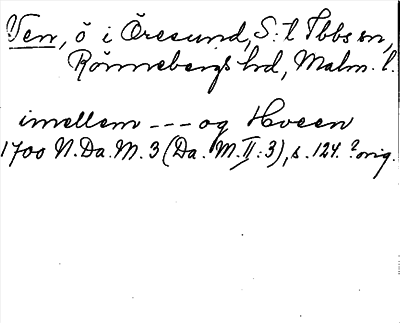 Ven, ö i Öresund, S:t Ibbs sn,
Rönnebergs hd, Malm. l.
imellem --- og Hveen
1700 N. Da. M. 3 (Da. M. II:3), s. 124. ? orig.